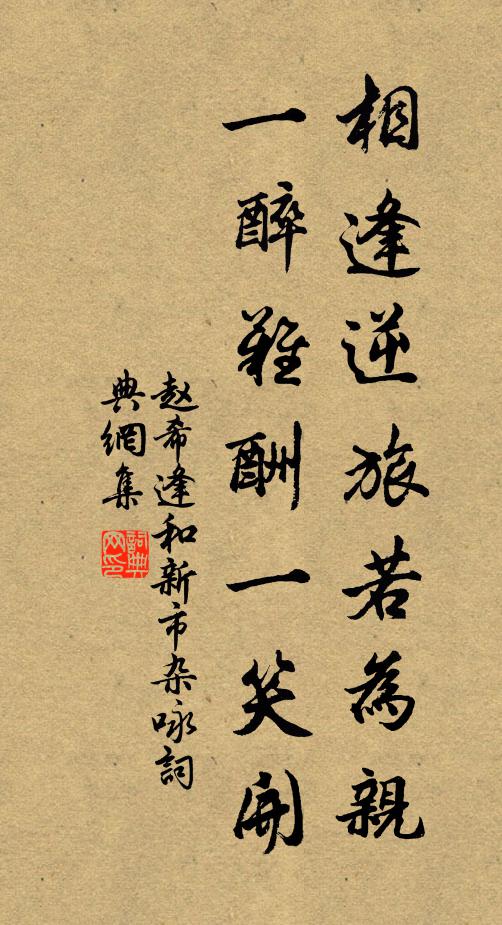 相逢逆旅若為親
一醉難酬一笑開
赵希逢和新市杂咏詞
典網集
詞典網印